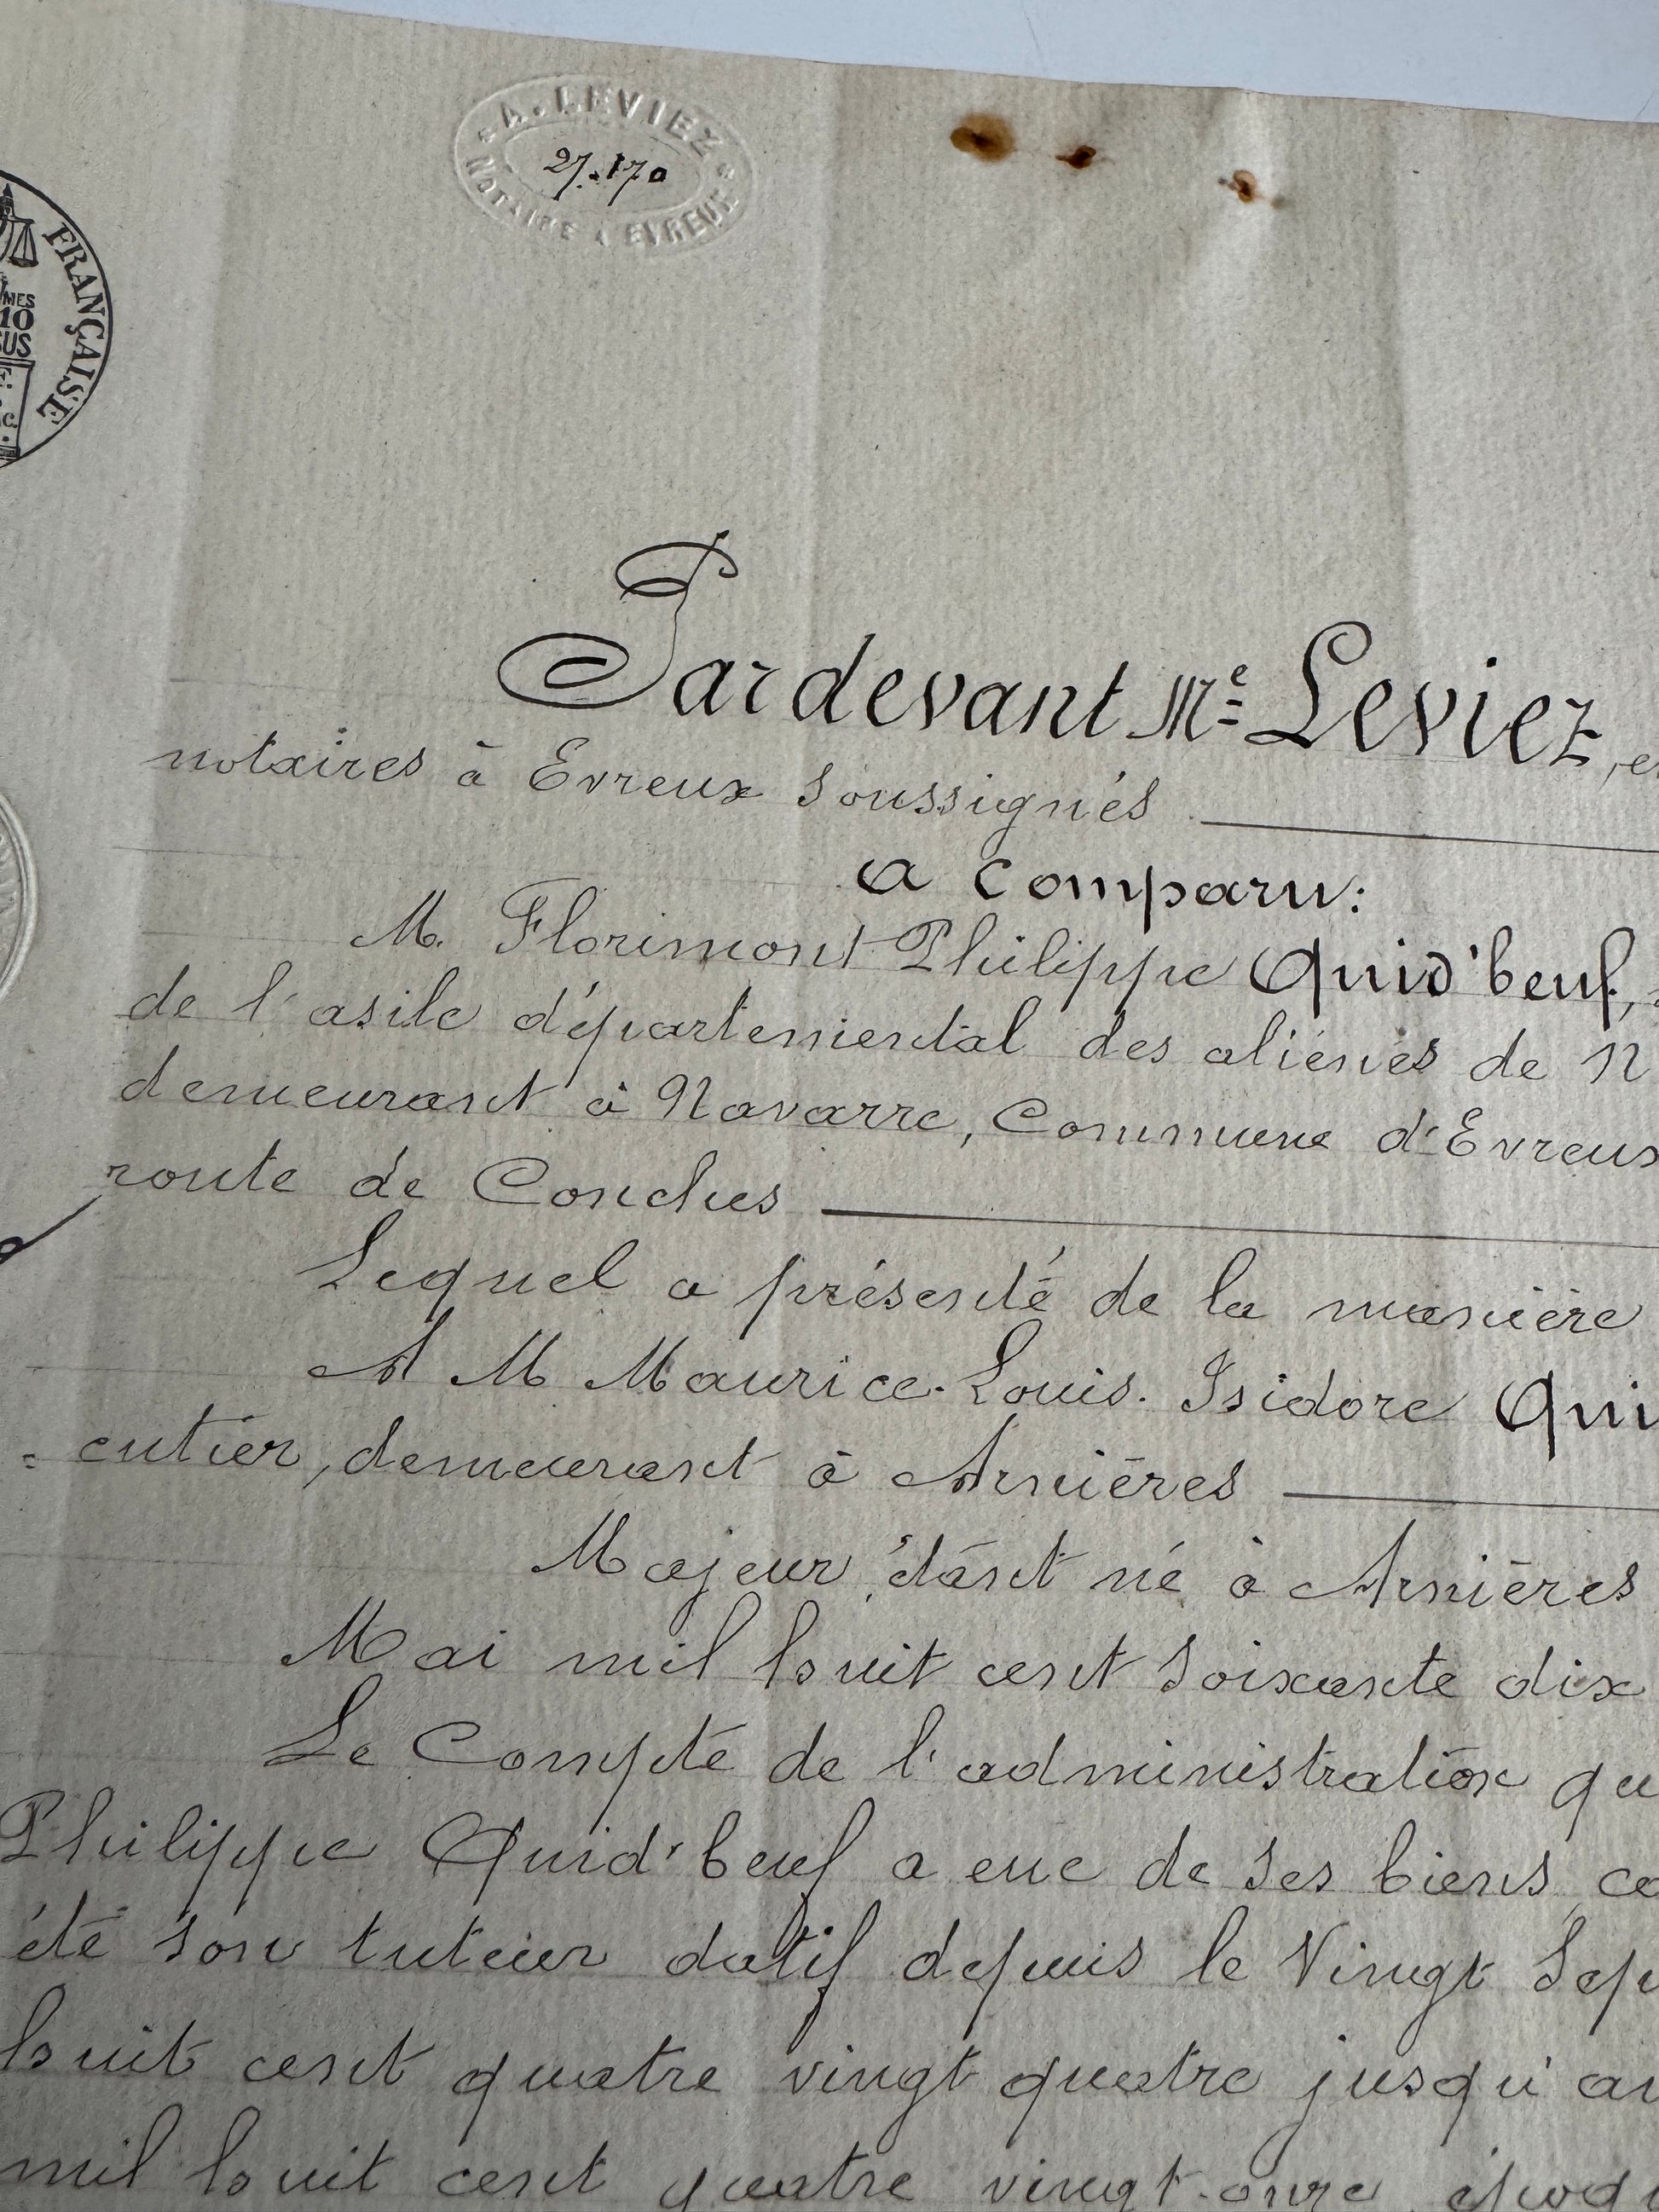 A. LEVIEZ
NOTAIRE À EVREUX
27.170
FRANÇAISE
MES
10
SUS
Pardevant Me Leviez, e
notaires à Evreux soussignés
a Comparu:
M. Florimont Philippe Quid'beuf,
de l'asile départemental des aliénés de N
demeurant à Navarre, Commune d'Evreux
route de Conches
Lequel a présenté de la manière
A M Maurice-Louis-Isidore Qui
= cutier, demeurant à Arnières
Majeur, étant né à Arnières
Mai mil huit cent soixante dix
Le Compte de l'administration qu
Philippe Quid'beuf a eue de ses biens, co
été son tuteur datif depuis le Vingt Sep
huit cent quatre vingt quatre jusqu'au
mil huit cent quatre vingt-onze époq